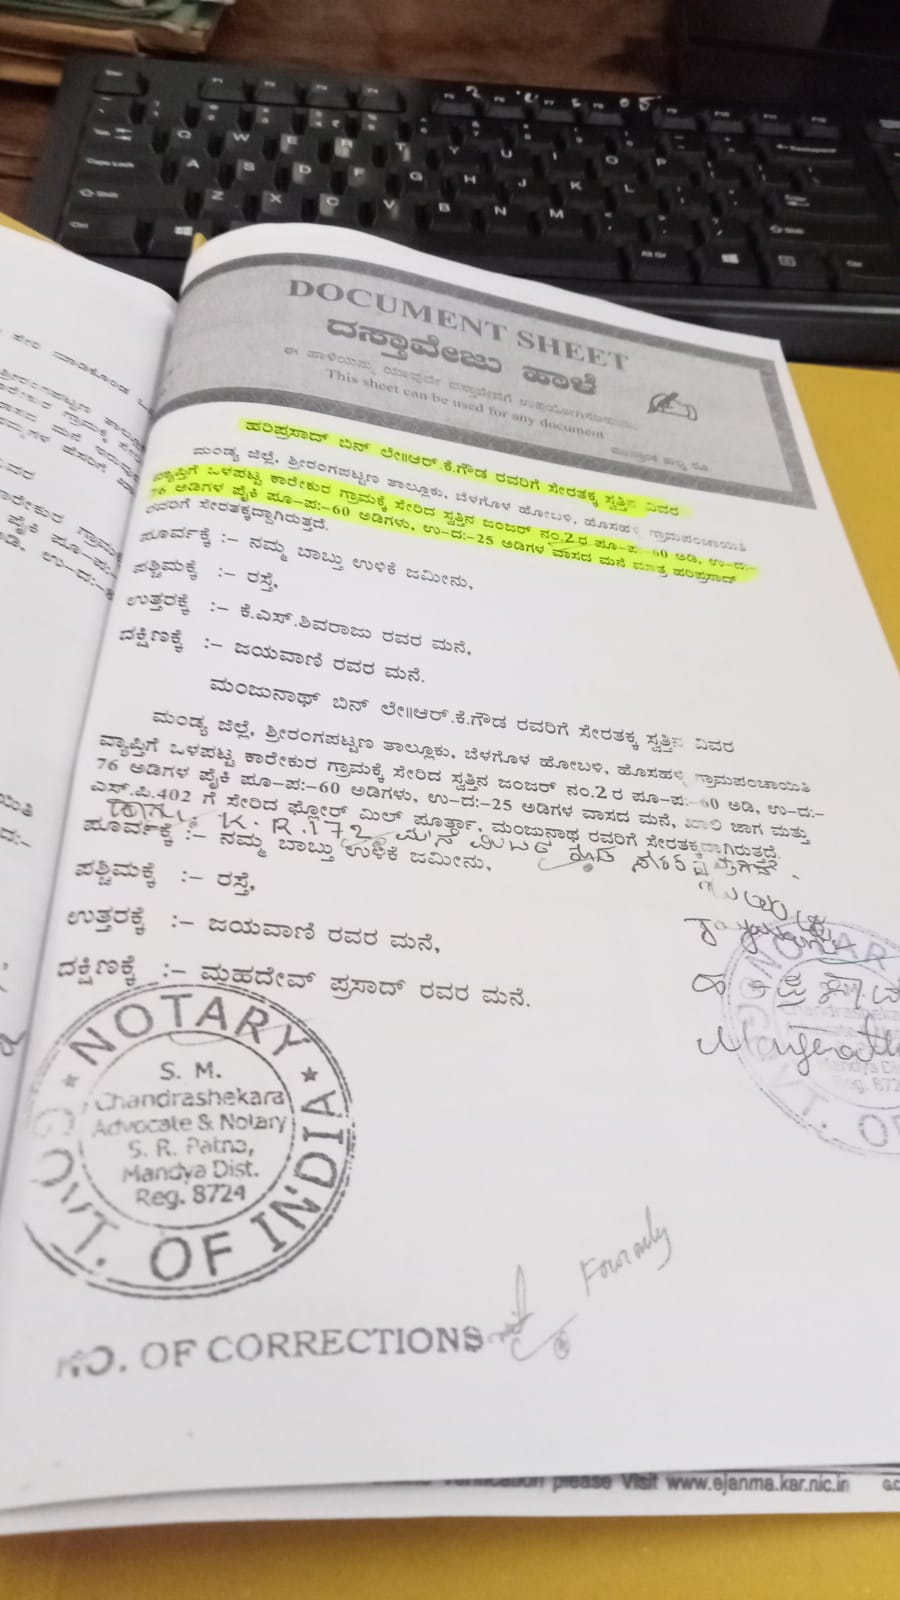 DOCUMENT SHEET
ದಸ್ತಾವೇಜು ಹಾಳೆ
ಈ ಹಾಳೆಯನ್ನು ಯಾವುದೇ ದಸ್ತಾವೇಜಿಗೆ ಉಪಯೋಗಿಸಬಹುದು
This sheet can be used for any document
ಹರಿಪ್ರಸಾದ್ ಬಿನ್ ಲೇ॥ಆರ್.ಕೆ.ಗೌಡ ರವರಿಗೆ ಸೇರತಕ್ಕ ಸ್ವತ್ತಿನ ವಿವರ
ಮಂಡ್ಯ ಜಿಲ್ಲೆ, ಶ್ರೀರಂಗಪಟ್ಟಣ ತಾಲ್ಲೂಕು, ಬೆಳಗೊಳ ಹೋಬಳಿ, ಹೊಸಹಳ್ಳಿ ಗ್ರಾಮಪಂಚಾಯಿತಿ
ವ್ಯಾಪ್ತಿಗೆ ಒಳಪಟ್ಟ ಕಾರೇಕುರ ಗ್ರಾಮಕ್ಕೆ ಸೇರಿದ ಸ್ವತ್ತಿನ ಜಂಜರ್ ನಂ.2 ರ ಪೂ-ಪ:- 60 ಅಡಿ, ಉ-ದ:-
76 ಅಡಿಗಳ ಪೈಕಿ ಪೂ-ಪ:-60 ಅಡಿಗಳು, ಉ-ದ:-25 ಅಡಿಗಳ ವಾಸದ ಮನೆ ಮಾತ್ರ ಹರಿಪ್ರಸಾದ್
ರವರಿಗೆ ಸೇರತಕ್ಕದ್ದಾಗಿರುತ್ತದೆ.
ಪೂರ್ವಕ್ಕೆ :- ನಮ್ಮ ಬಾಬ್ತು ಉಳಿಕೆ ಜಮೀನು,
ಪಶ್ಚಿಮಕ್ಕೆ :- ರಸ್ತೆ,
ಉತ್ತರಕ್ಕೆ :- ಕೆ.ಎಸ್.ಶಿವರಾಜು ರವರ ಮನೆ,
ದಕ್ಷಿಣಕ್ಕೆ :- ಜಯವಾಣಿ ರವರ ಮನೆ.
ಮಂಜುನಾಥ್ ಬಿನ್ ಲೇ॥ಆರ್.ಕೆ.ಗೌಡ ರವರಿಗೆ ಸೇರತಕ್ಕ ಸ್ವತ್ತಿನ ವಿವರ
ಮಂಡ್ಯ ಜಿಲ್ಲೆ, ಶ್ರೀರಂಗಪಟ್ಟಣ ತಾಲ್ಲೂಕು, ಬೆಳಗೊಳ ಹೋಬಳಿ, ಹೊಸಹಳ್ಳಿ ಗ್ರಾಮಪಂಚಾಯಿತಿ
ವ್ಯಾಪ್ತಿಗೆ ಒಳಪಟ್ಟ ಕಾರೇಕುರ ಗ್ರಾಮಕ್ಕೆ ಸೇರಿದ ಸ್ವತ್ತಿನ ಜಂಜರ್ ನಂ.2 ರ ಪೂ-ಪ:- 60 ಅಡಿ, ಉ-ದ:-
76 ಅಡಿಗಳ ಪೈಕಿ ಪೂ-ಪ:-60 ಅಡಿಗಳು, ಉ-ದ:-25 ಅಡಿಗಳ ವಾಸದ ಮನೆ, ಖಾಲಿ ಜಾಗ ಮತ್ತು
ಎಸ್.ಪಿ.402 ಗೆ ಸೇರಿದ ಫ್ಲೋರ್ ಮಿಲ್ ಪೂರ್ತಾ, ಮಂಜುನಾಥ ರವರಿಗೆ ಸೇರತಕ್ಕದ್ದಾಗಿರುತ್ತದೆ.
ಹಾಗೂ K.R.172
ಪೂರ್ವಕ್ಕೆ :- ನಮ್ಮ ಬಾಬ್ತು ಉಳಿಕೆ ಜಮೀನು,
ಪಶ್ಚಿಮಕ್ಕೆ :- ರಸ್ತೆ,
ಉತ್ತರಕ್ಕೆ :- ಜಯವಾಣಿ ರವರ ಮನೆ,
ದಕ್ಷಿಣಕ್ಕೆ :- ಮಹದೇವ್ ಪ್ರಸಾದ್ ರವರ ಮನೆ.
NOTARY
GOVT. OF INDIA
S. M.
Chandrashekara
Advocate & Notary
S. R. Patna,
Mandya Dist.
Reg. 8724
NO. OF CORRECTIONS
please Visit www.ejanma.kar.nic.in